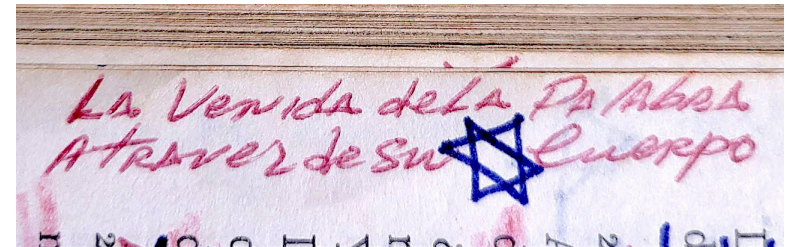 La Venida de LA PalAbRA
AtRAVez de Su Cuerpo